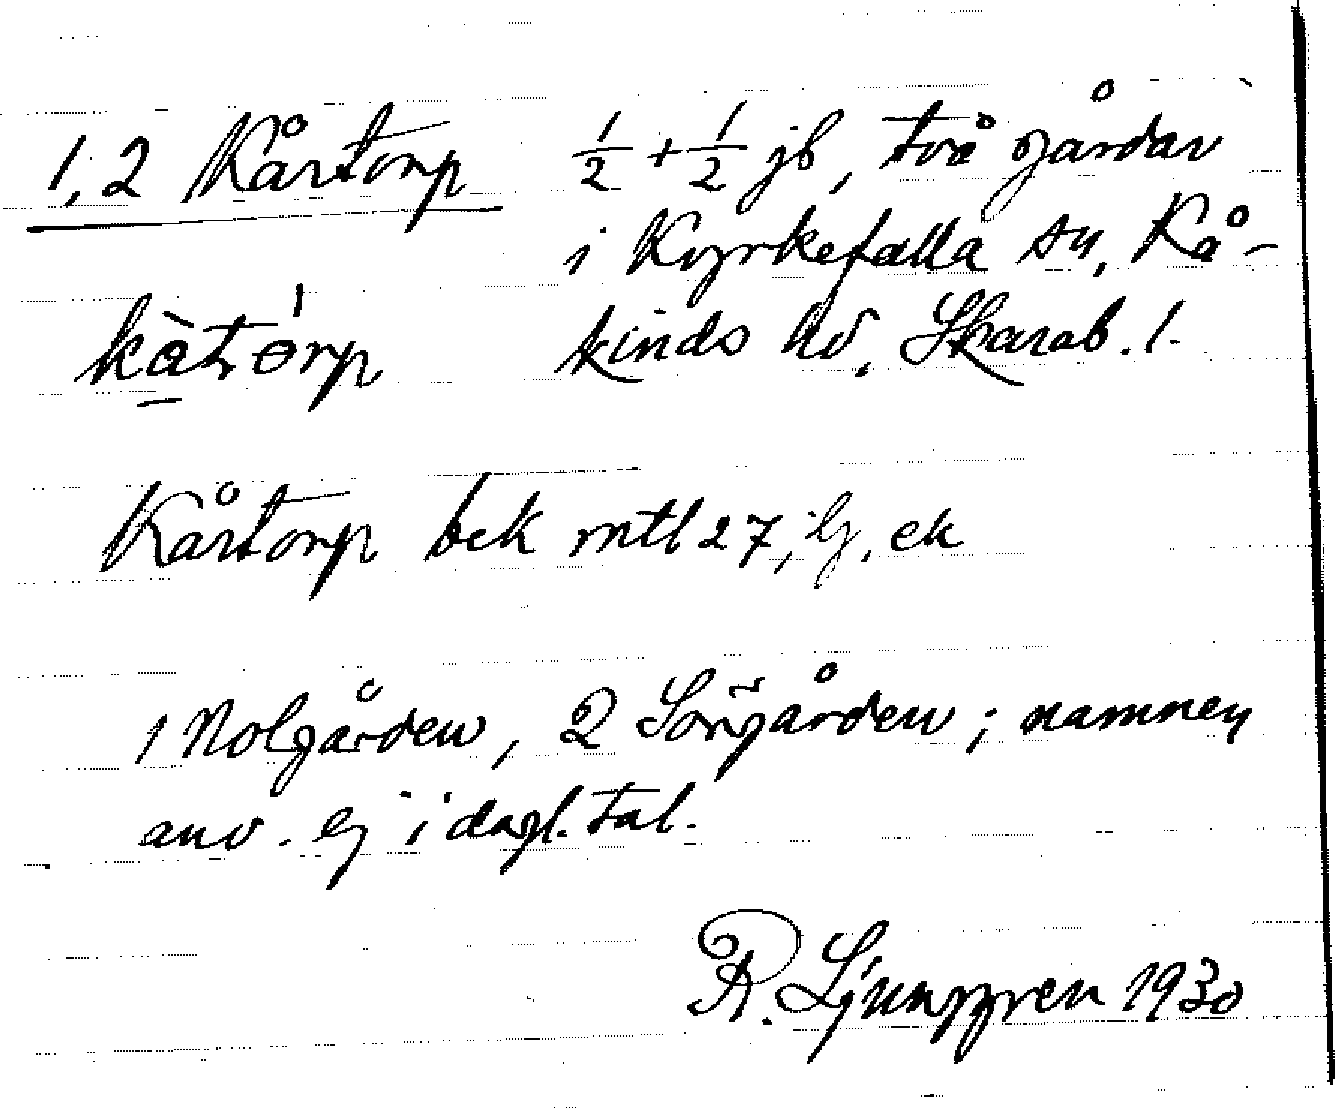 1, 2 Kårtorp ½ + ½ jb, två gårdar
i Kyrkefalla sn, Kå-
kinds hd, Skarab. l.
kàtórp
Kårtorp bek mtl 27, lj, ek
1 Nolgården, 2 Sörgården; namnen
anv. ej i dagl. tal.
R. Ljunggren 1930